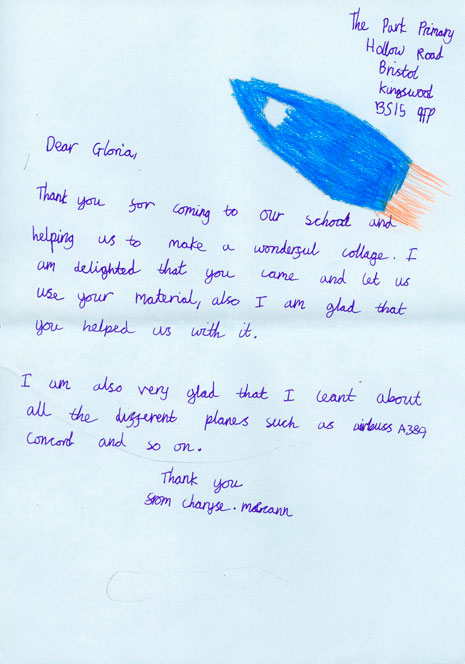 The Park Primary
Hollow Road
Bristol
Kingswood
BS15 9TP
Dear Gloria,
Thank you for coming to our school and
helping us to make a wonderful collage. I
am delighted that you came and let us
use your material, also I am glad that
you helped us with it.
I am also very glad that I leant about
all the different planes such as airbuss A389
Concord and so on.
Thank you
from charyse.